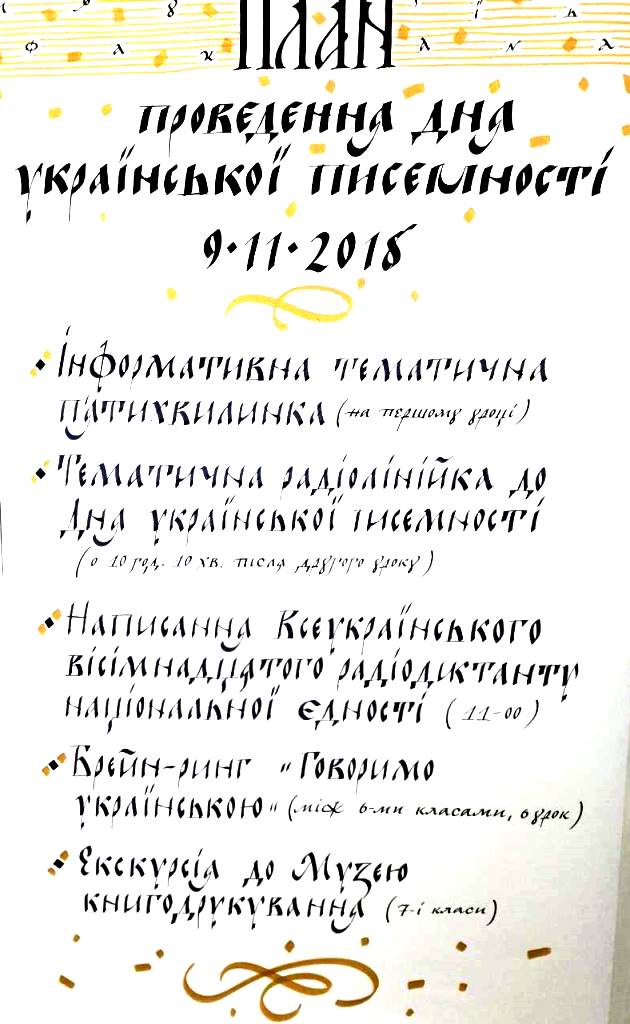 ПЛАН
проведення дня
української писемності
9·11·2018
Інформативна тематична
п'ятихвилинка (на першому уроці)
Тематична радіолінійка до
Дня української писемності
(о 10 год. 10 хв. після другого уроку)
Написання Всеукраїнського
вісімнадцятого радіодиктанту
національної єдності (11-00)
Брейн-ринг „Говоримо
українською" (між 6-ми класами, 6 урок)
Екскурсія до Музею
книгодрукування (7-і класи)